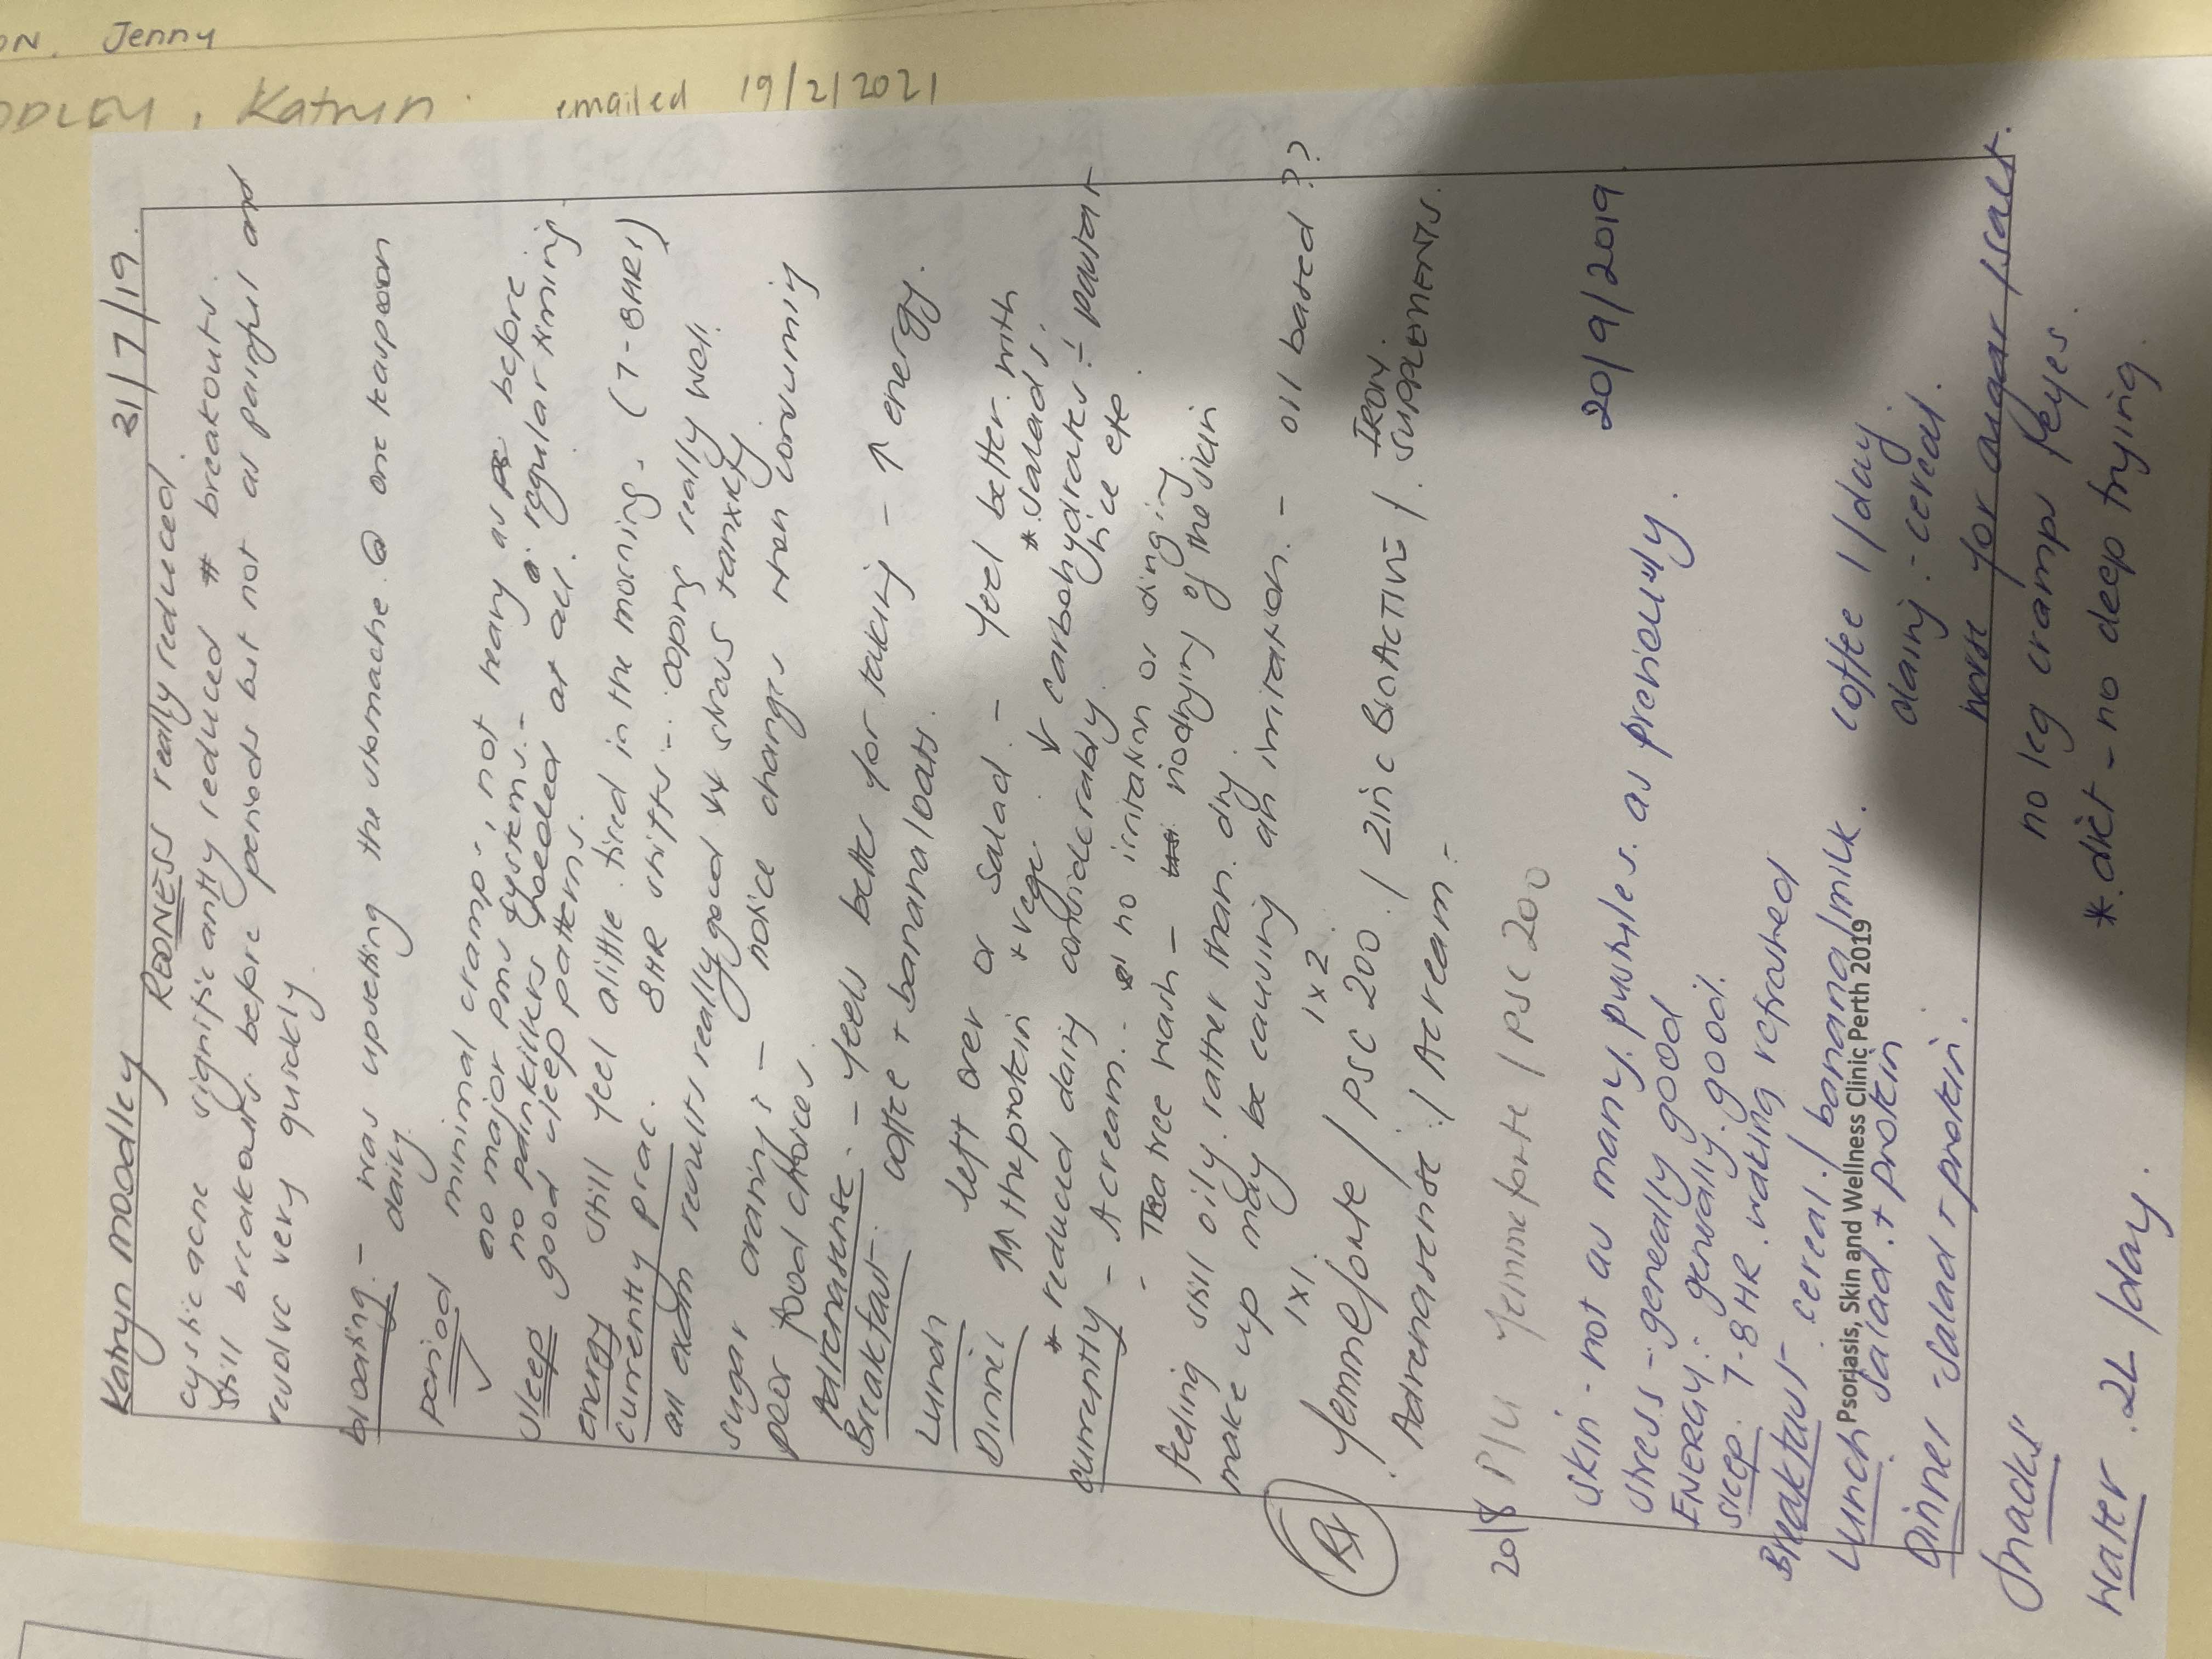 ON. Jenny
Katryn. emailed 19/2/2021
Katryn moodley 31/7/19.
REDNESS really reduced
cystic acne significantly reduced # breakouts.
still breakouts before periods but not as painful and
resolve very quickly
bloating - was upsetting the stomache @ one teaspoon
daily.
period minimal cramps, not heavy as before
no major pms systems - a regular timing.
no painkillers needed at all.
sleep good sleep patterns.
energy still feel a little tired in the morning. (7-8HRS)
currently prac. 8HR shifts - coping really well.
all exam results really good stress + anxiety
sugar cravings - notice changes when consuming
poor food choices.
Adrenasense. - feels better for taking - ↑ energy.
Breakfast - coffee + banana/oats.
Lunch left over or salad - feel better with
Dinner protein + vege * salads.
* reduced dairy considerably. ↓ carbohydrates
rice etc.
currently - A cream. no irritation or dinging
- Tea tree wash - drying of the skin
feeling still oily rather than dry
make up may be causing an irritation. - oil based ??
1x1 1x2
Rx Femmeforte / PSC 200 / Zinc BioACTIVE / IRON SUPPLEMENTS.
Adrenasense / A cream.
20/8 P/U Femmeforte / PSC 200
20/9/2019
skin - not as many pustules as previously.
stress - generally good
ENERGY - generally good.
sleep. 7-8HR waking refreshed
Breakfast - cereal / banana/milk. coffee 1/day
Lunch salad + protein dairy - cereal.
Psoriasis, Skin and Wellness Clinic Perth 2019
Dinner - salad + protein. worse for sugar/salt.
Snacks no leg cramps / eyes.
Water. 2L /day. * diet - no deep frying.